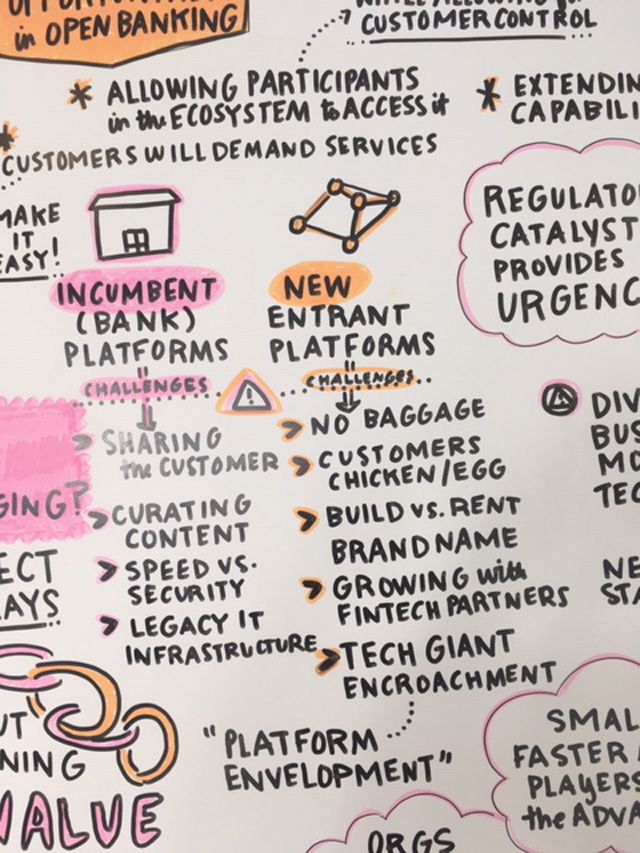 in OPEN BANKING
CUSTOMER CONTROL
* ALLOWING PARTICIPANTS
in the ECOSYSTEM to ACCESS it
*
CUSTOMERS WILL DEMAND SERVICES
MAKE
IT
EASY!
INCUMBENT
(BANK)
PLATFORMS
CHALLENGES
SHARING
the CUSTOMER
CURATING
CONTENT
SPEED VS.
SECURITY
LEGACY IT
INFRASTRUCTURE
NEW
ENTRANT
PLATFORMS
CHALLENGES
NO BAGGAGE
CUSTOMERS
CHICKEN/EGG
BUILD VS. RENT
BRAND NAME
GROWING with
FINTECH PARTNERS
TECH GIANT
ENCROACHMENT
"PLATFORM
ENVELOPMENT"
* EXTENDIN
CAPABILI
REGULATO
CATALYST
PROVIDES
URGENC
DIV
BUS
MO
TEC
NE
STA
SMAL
FASTER
PLAYERS
the ADVA
ORGS
GING?
ECT
LAYS
UT
NING
VALUE